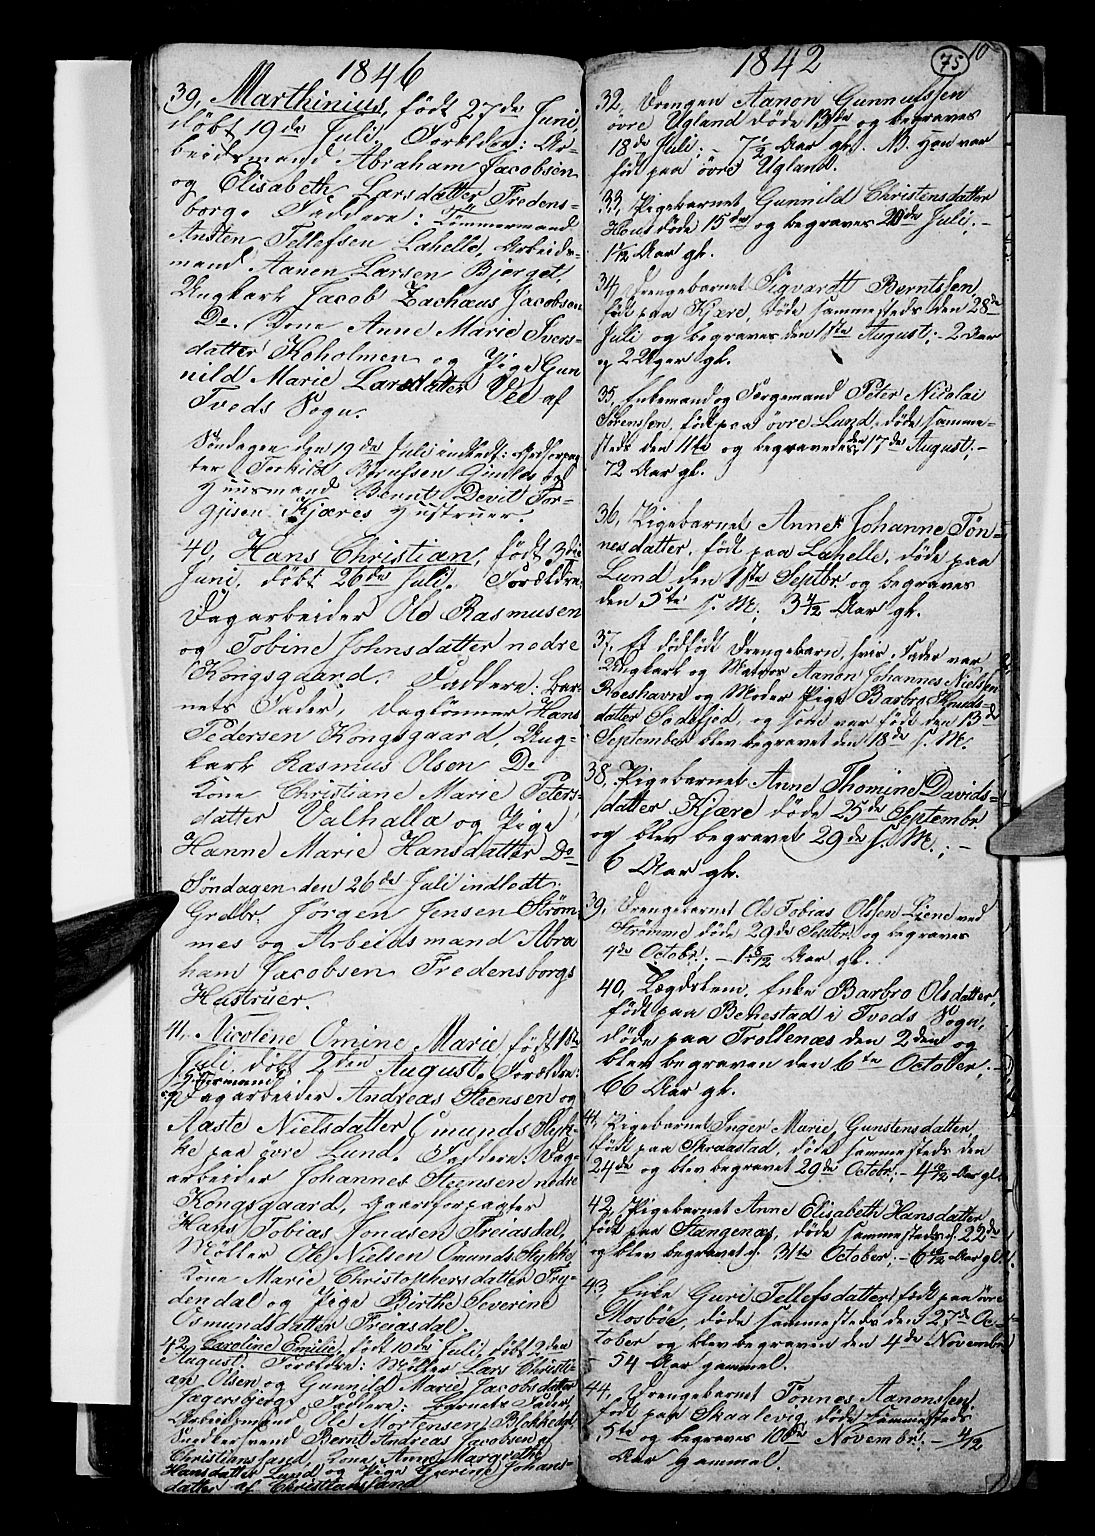 1846
39, Marthinius, födt 27de Juni,
döbt 19de Juli. Forældre: Ar-
beidsmand Abraham Jacobsen
og Elisabeth Larsdatter Fredens-
borg. Faddere: Tömmermand
Ansten Tellefsen Lahelle, Arbeids-
mand Aanon Larsen Bjorget,
Ungkarl Jacob Zachæus Jacobsen
Do. Kone Anne Marie Ivers-
datter Koholmen og Pige Gun
nild Marie Larsdatter Vee af
Tveds Sogn.
Söndagen den 19de Juli indledt:
ter Terkild
Huusmand Bernt Devit Tor-
gjusen Kjæres Hustruer.
40, Hans Christian, födt 3die
Juni, döbt 26de Juli. Forældre
Dagarbeider Ole Rasmusen
og Tobine Johnsdatter nedre
Kongsgaard. Faddere: Bar-
nets Fader, Daglönner Hans
Pedersen Kongsgaard, Ung-
karl Rasmus Olsen Do
Kone Christiane Marie Peters-
datter Valhalla og Pige
Hanne Marie Hansdatter Do
Söndagen den 26de Juli indledt:
Grdbr. Jörgen Jensen Ström-
mes og Arbeidsmand Abra
ham Jacobsen Fredensborgs
Hustruer.
41, Nicoline Omine Marie, födt 18de
Juli, döbt 2den August. Forældre:
Huusmand
og Dagarbeider Andreas Steensen og
Aaste Nielsdatter Omunds Styk-
ke paa övre Lund. Faddere: Dag-
arbeider Johannes Steensen nedre
Kongsgaard, Gaardforpagter
Hans Tobias Jonasen Freiasdal,
Möller Ole Nilsen Omunds Stykke
Kone Marie Christophersdatter Fry-
dendal og Pige Birthe Severine
Osmundsdatter Freiasdal.
42, Caroline Emilie, födt 10de Juli, döbt 2den
August. Forældre: Möller Lars Christi-
an Olsen og Gunnild Marie Jacobsdatter
Jagersbjerg. Faddere: Barnets Fader,
Arbeidsmand Ole Mortensen Blekkedal,
Bernt Andreas Jacobsen af
Christianssand, Kone Anne Margrethe
Hansdatter Lund og Pige Johans-
datter af Christianssand
1842
75
10
32, Drengen Aanon Gunnufssen
övre Ugland döde 13de og begraves
18de Juli. - 7 1/2 Aar gl. NB. Han var
födt paa övre Ugland.
33, Pigebarnet Gunnild Christensdatter
döde 15de og begraves 20de Juli. -
1 1/2 Aar gl.
34, Drengebarnet Sigvardt Berntssen
födt paa Kjære, döde sammesteds den 28de
Juli og begraves den 1ste August; - 2 Aar
og 2 Uger gl.
35, Enkemand og Færgemand Peter Nicolai
Sörenssen, födt paa övre Lund, döde samme-
steds den 11te og begravedes den 17de August; -
72 Aar gl.
36, Pigebarnet Anne Johanne Tön-
nesdatter, födt paa Lahelle, döde paa
Lund den 1ste Septbr. og begraves
den 5te s. M.; 3 4/12 Aar gl.
37, Et dödfödt Drengebarn, hvis Fader var
Ungkarl og Matros Aanon Johannes Nielsen
Roeshavn og Moder Pige Barbro Knuds-
datter Sodefjed, og som var födt den 13de
September blev begravet den 18de s. M.
38, Pigebarnet Anne Thomine Davids-
datter Kjære döde 25de Septembr.
og blev begravet 29de s. M.; -
6 Aar gl.
39, Drengebarnet Ole Tobias Olssen Liene ved
Strömme döde 29de Septbr. og begraves
4de Octobr. - 1 8/12 Aar gl.
40, Lægdslem, Enke Barbro Olsdatter,
födt paa Benestad i Tveds Sogn,
döde paa Trollenæs den 2den og
blev begraven den 6te October; -
66 Aar gl.
41, Pigebarnet Inger Marie Gunstensdatter,
födt paa Skraastad, döde sammesteds den
24de og blev begravet 29de Octobr; - 4 9/12 Aar gl.
42, Pigebarnet Anne Elisabeth Hansdatter
födt paa Stangenæs, döde sammesteds d. 22de
og blev begravet d. 31te October; - 6 10/12 Aar gl.
43, Enke Guri Tellefsdatter, födt paa övre
Mosböe, döde sammesteds den 27de Oc-
tober og blev begraven den 4de November
54 Aar gammel.
44, Drengebarnet Tönnes Aanonssen,
födt paa Skaalevig, döde sammesteds
5te og begraves 10de Novembr. - 4/12
Aar gammel.